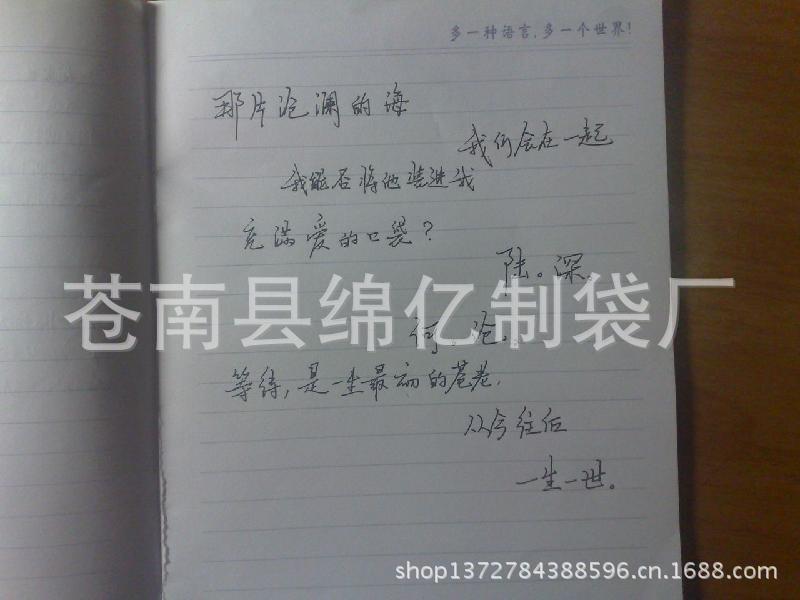 多一种语言,多一个世界!
那片沧澜的海
我们会在一起
我能否将他装进我
充满爱的口袋?
陆。深.
苍南县绵亿制袋厂
何。沧.
等待,是一生最初的苍老.
从今往后
一生一世。
shop1372784388596.cn.1688.com